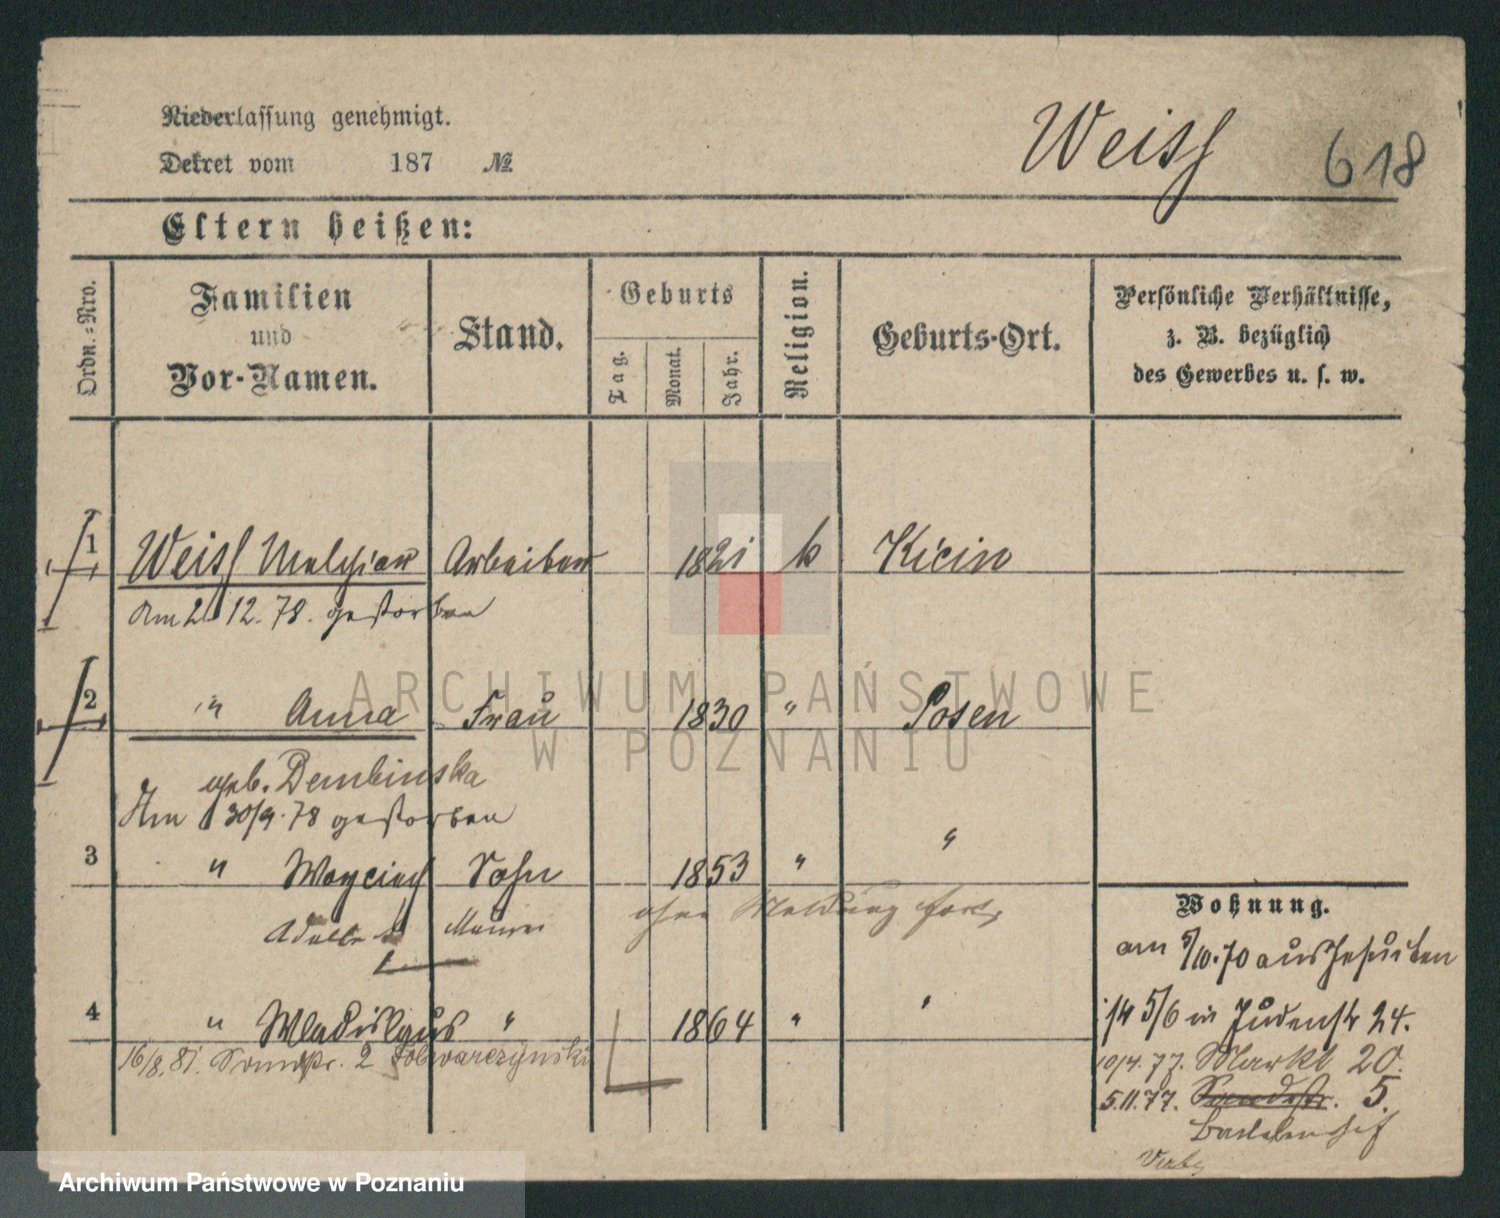 Niederlassung genehmigt.
Dekret vom 187 №
Weiss 618
Eltern heißen:
Ordn.-Nro.
Familien
und
Vor-Namen.
Stand.
Geburts
Tag.
Monat.
Jahr.
Religion.
Geburts-Ort.
Persönliche Verhältnisse,
z. B. bezüglich
des Gewerbes u. s. w.
1 Weiss Arbeiter 1821 k Kicin
Am 12. 78. gestorben
2 " Anna Frau 1830 " Posen
geb. Dembinska
Am 30/9. 78 gestorben
3 " Woyciech Sohn 1853 " "
ohne Meldung fort
Wohnung.
am 5/10. 70 aus Jesuiten
4 " Wladislaus " 1864 " "
str 5/6 in Judenstr 24.
16/8. 81. 2 Folwarczynski
10/4. 77. Markt 20.
5.11.77. 5.
ARCHIWUM PAŃSTWOWE
W POZNANIU
Archiwum Państwowe w Poznaniu